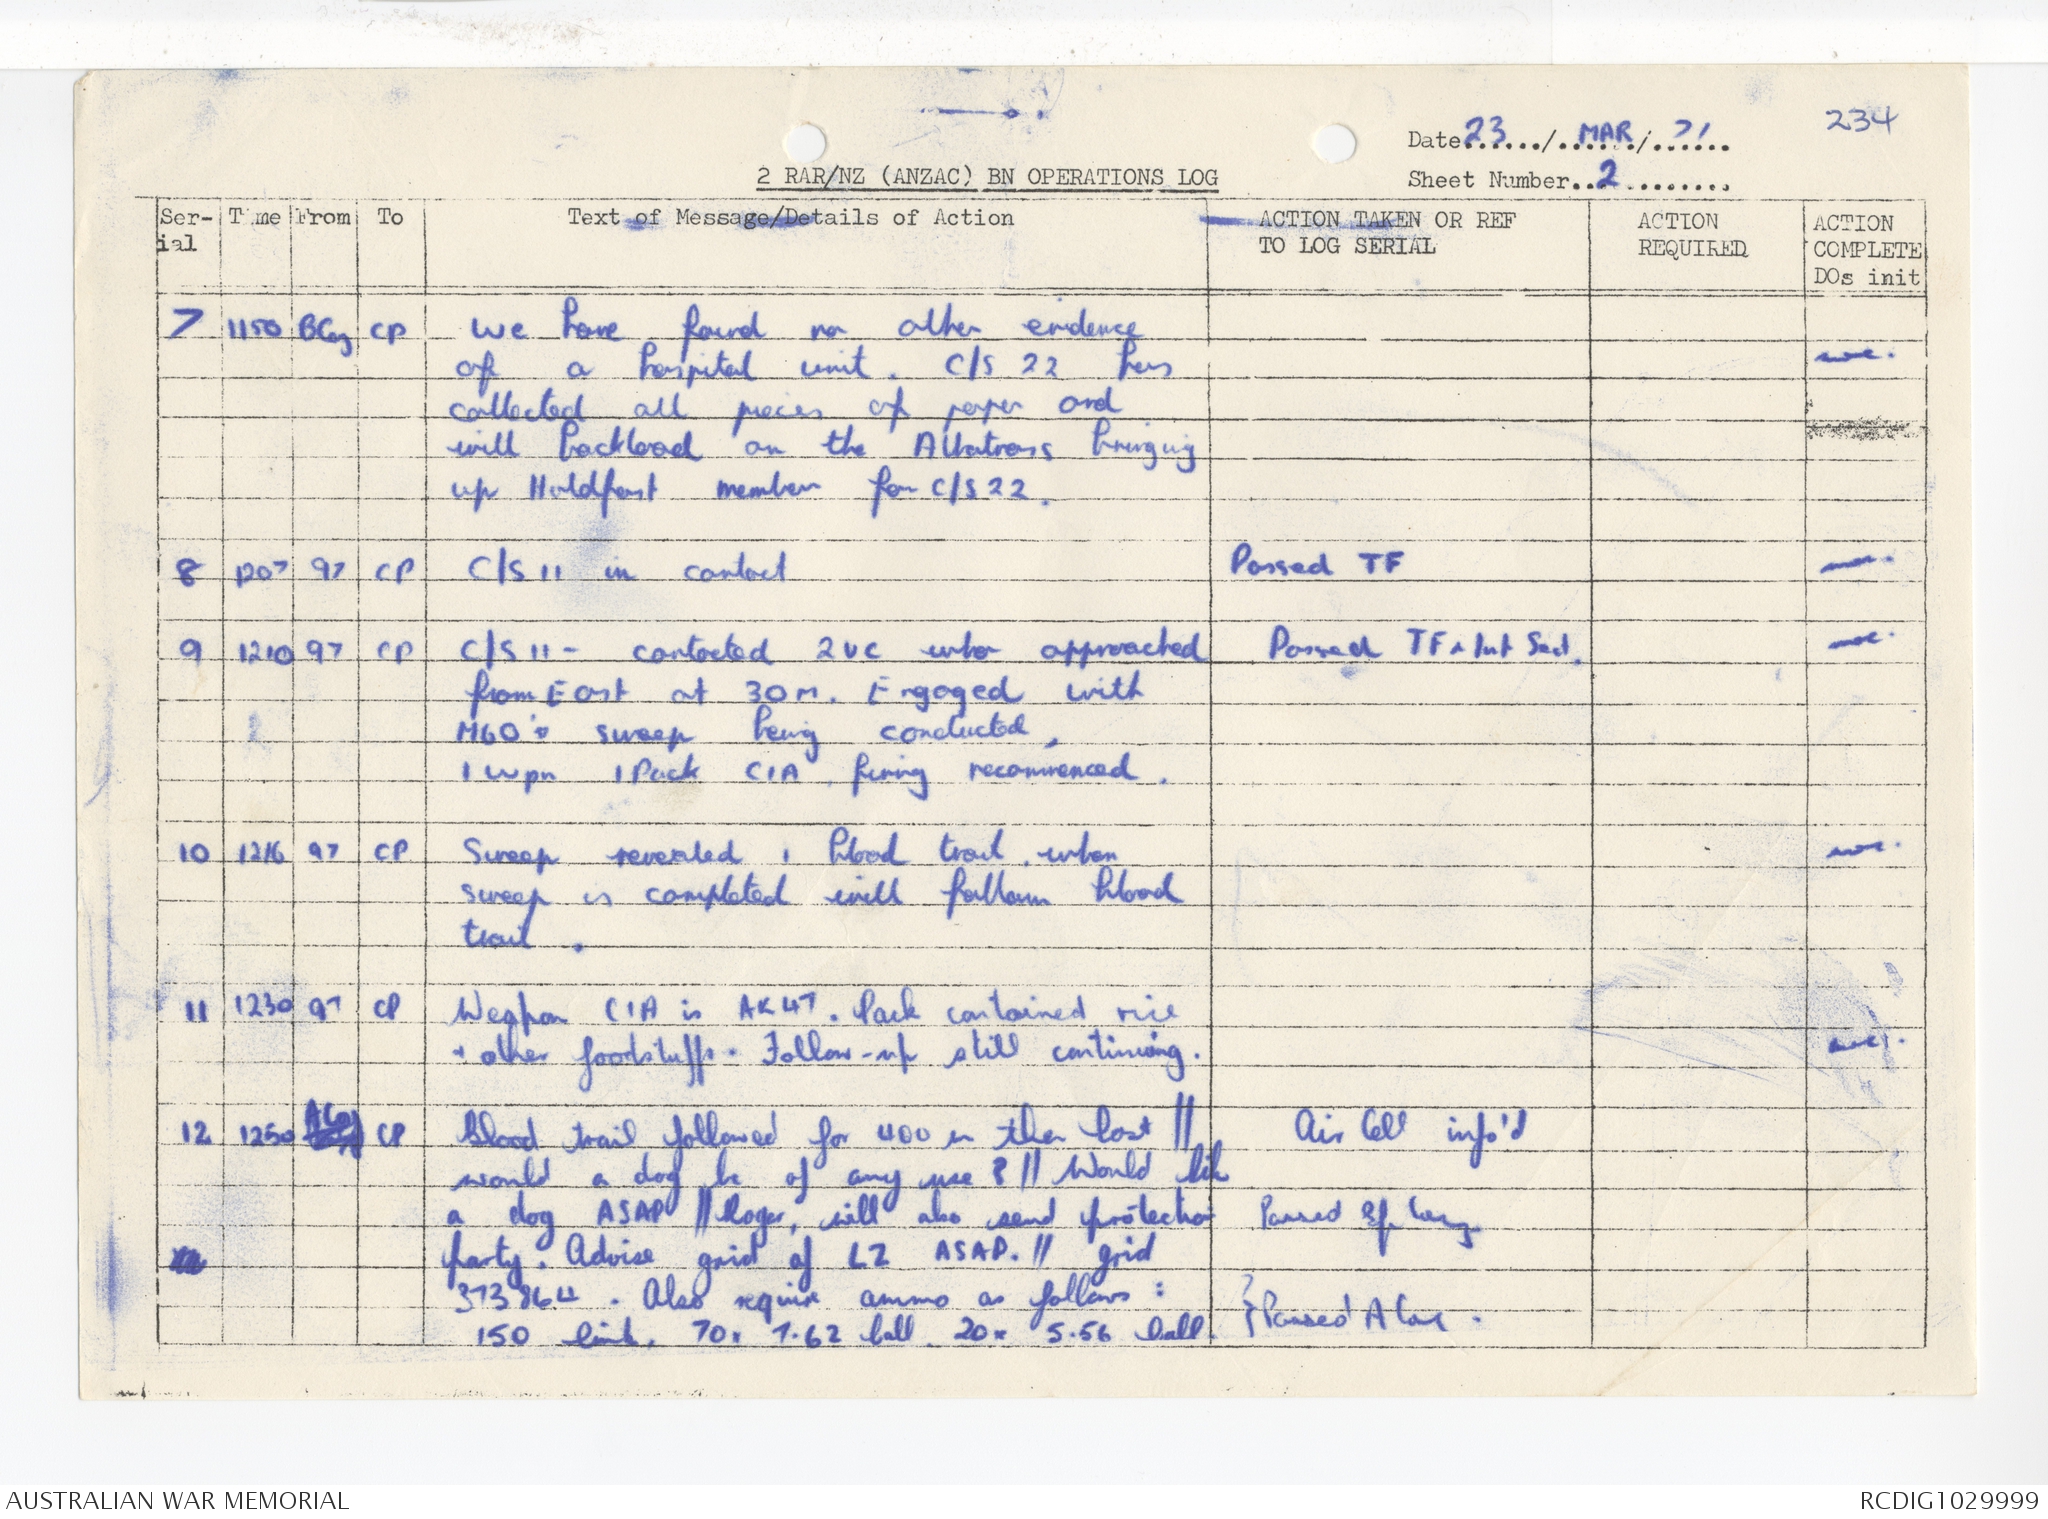 234
Date 23 / MAR / 71
2 RAR/NZ (ANZAC) BN OPERATIONS LOG
Sheet Number 2
Ser-ial Time From To Text of Message/Details of Action ACTION TAKEN OR REF TO LOG SERIAL ACTION REQUIRED ACTION COMPLETE DOs init
7 1150 BCoy CP We have found no other evidence
of a hospital unit. C/S 22 has
collected all pieces of paper and
will backload on the Albatross bringing
up Holdfast member for C/S 22.
8 1207 97 CP C/S 11 in contact Passed TF
9 1210 97 CP C/S 11 - contacted 2 VC who approached Passed TF + Int Sect.
from East at 30 M. Engaged with
M60's sweep being conducted,
1 wpn 1 Pack CIA, firing recommenced.
10 1216 97 CP Sweep revealed 1 blood trail, when
sweep is completed will follow blood
trail.
11 1230 97 CP Weapon CIA is AK47. Pack contained rice
+ other foodstuffs. Follow-up still continuing.
12 1250 ACoy CP Blood trail followed for 400 m then lost // Air Cell info'd
would a dog be of any use? // Would like
a dog ASAP // Roger, will also send protection Passed Sp Coy
party. Advise grid of LZ ASAP. // grid
373864. Also require ammo as follows:
150 link, 70x 7.62 ball, 20x 5.56 ball. } Passed A Coy.
AUSTRALIAN WAR MEMORIAL
RCDIG1029999